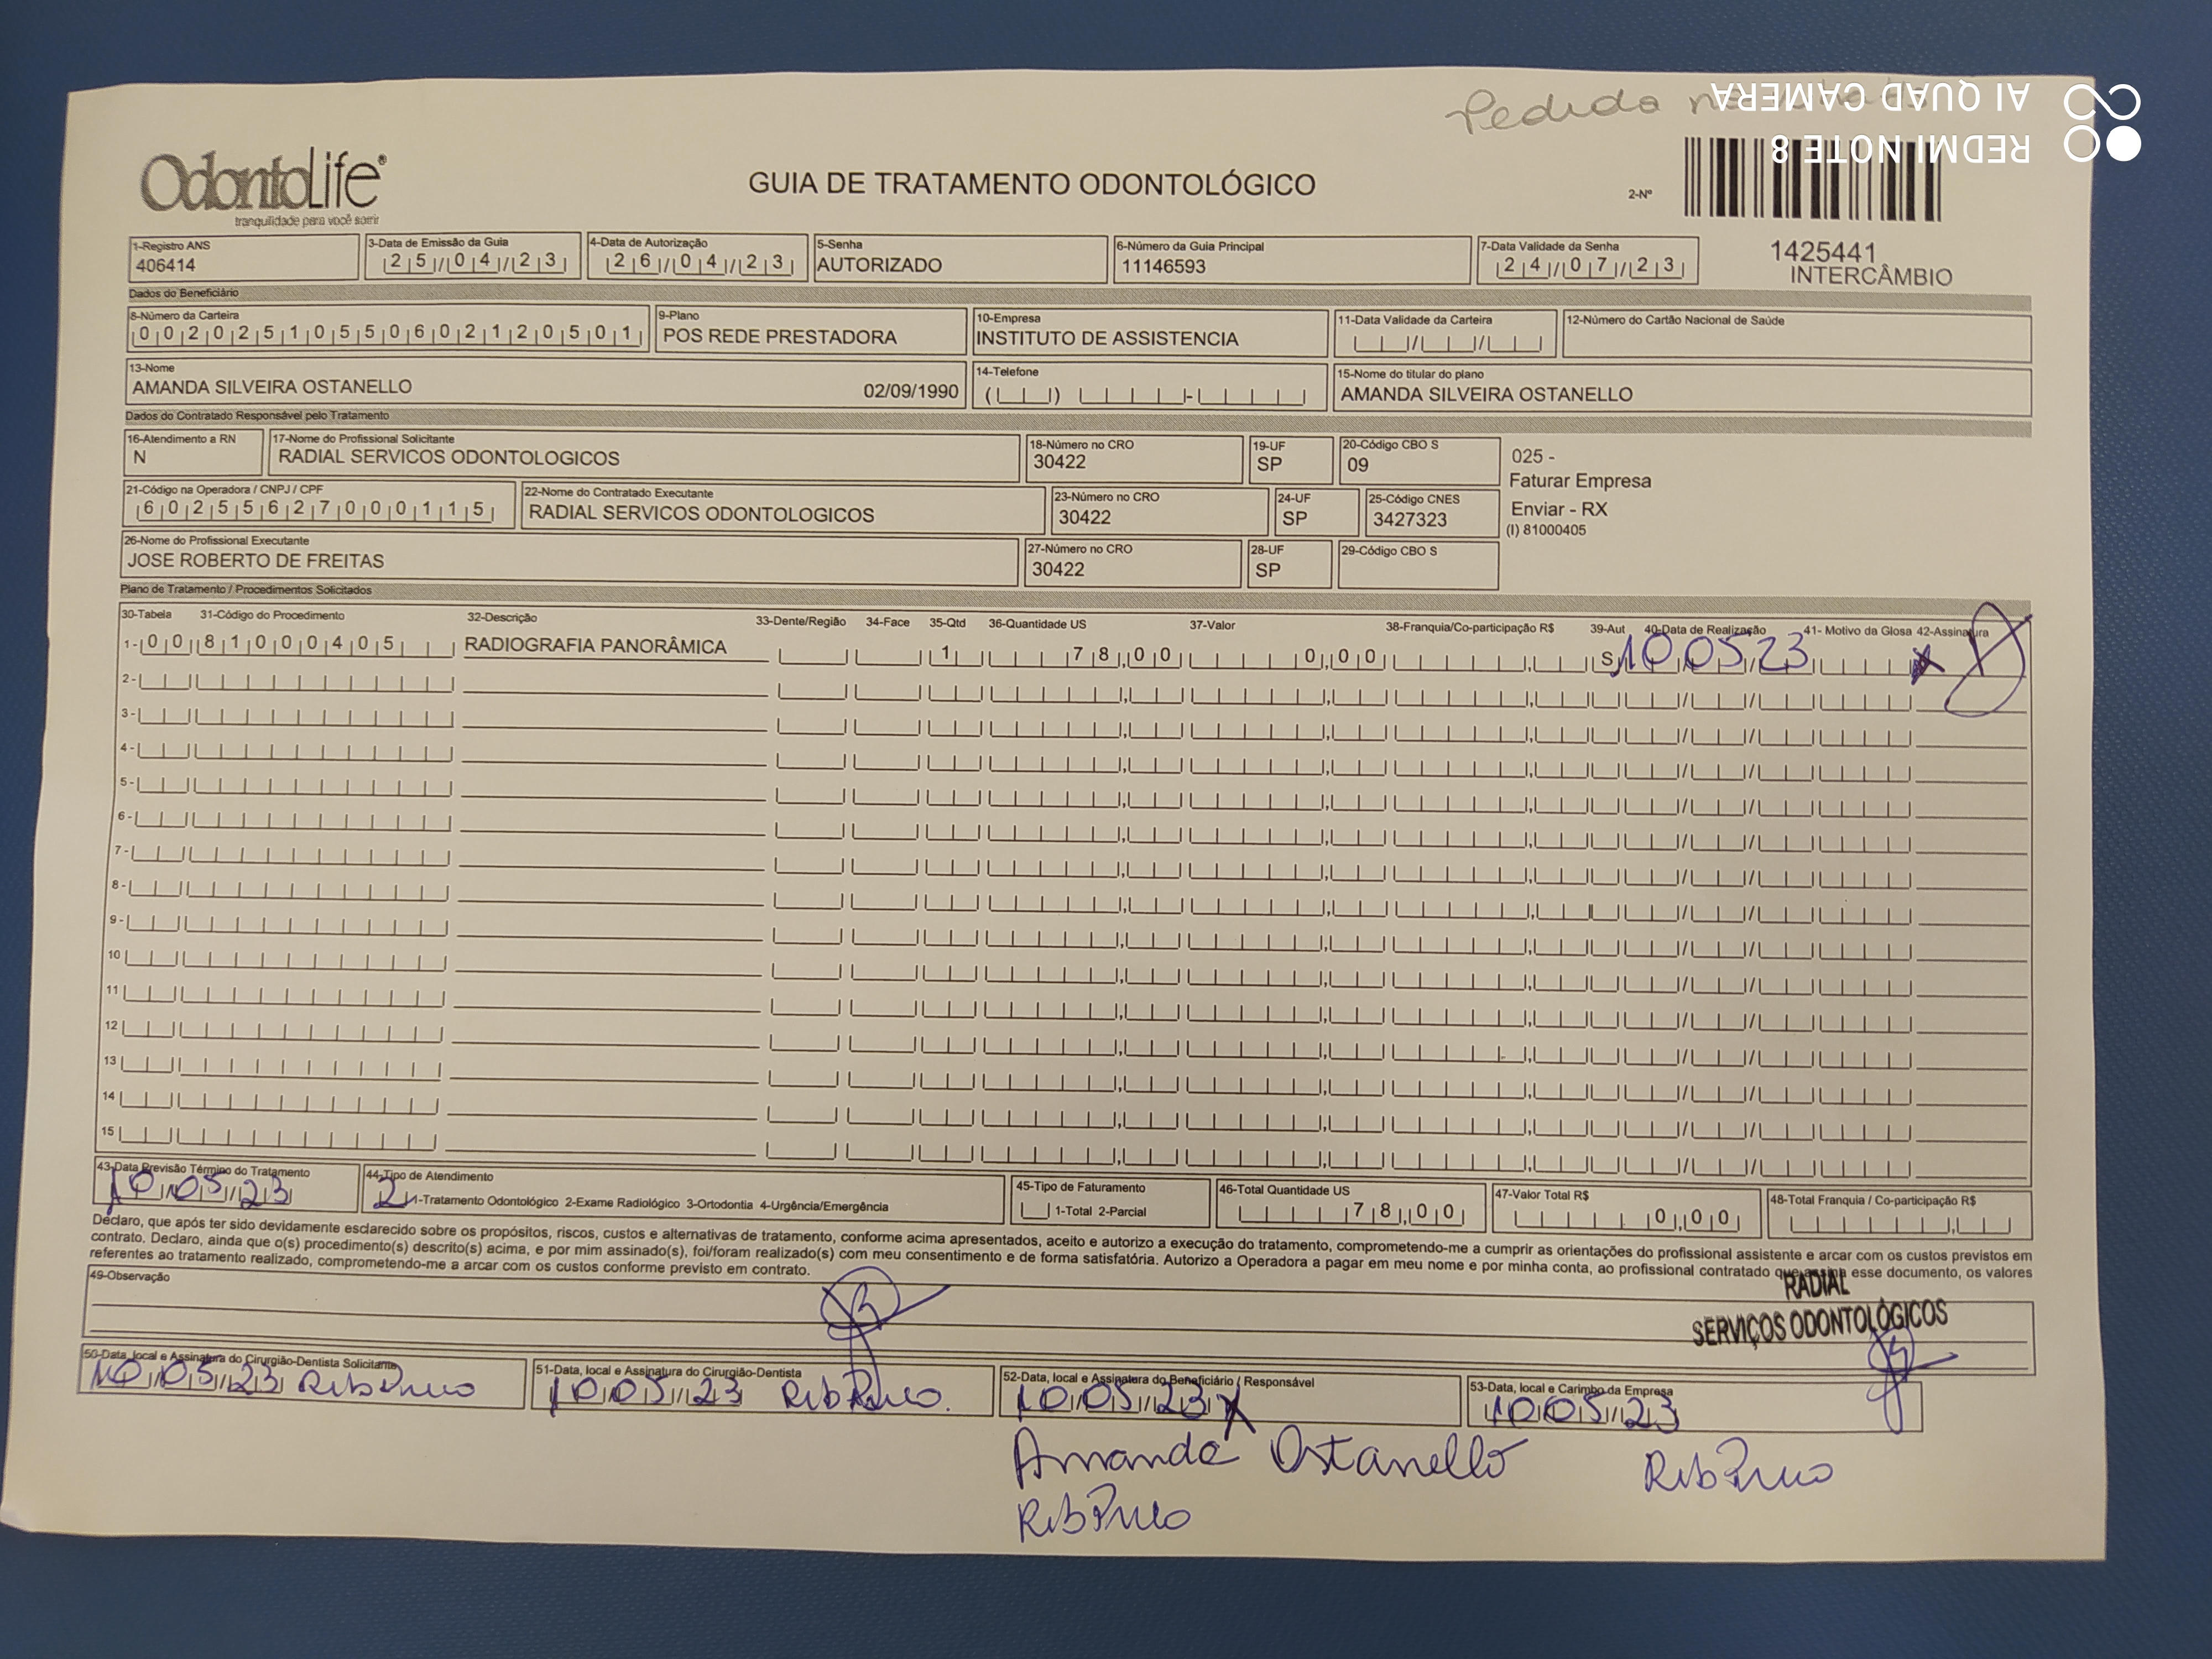 Pedido
REDMI NOTE 8
AI QUAD CAMERA
OdontoLife®
tranquilidade para você sorrir
GUIA DE TRATAMENTO ODONTOLÓGICO
2-Nº
1425441
INTERCÂMBIO
1-Registro ANS 3-Data de Emissão da Guia 4-Data de Autorização 5-Senha 6-Número da Guia Principal 7-Data Validade da Senha
406414 25/04/23 26/04/23 AUTORIZADO 11146593 24/07/23
Dados do Beneficiário
8-Número da Carteira 9-Plano 10-Empresa 11-Data Validade da Carteira 12-Número do Cartão Nacional de Saúde
00202510550602120501 POS REDE PRESTADORA INSTITUTO DE ASSISTENCIA / /
13-Nome 14-Telefone 15-Nome do titular do plano
AMANDA SILVEIRA OSTANELLO 02/09/1990 ( ) - AMANDA SILVEIRA OSTANELLO
Dados do Contratado Responsável pelo Tratamento
16-Atendimento a RN 17-Nome do Profissional Solicitante 18-Número no CRO 19-UF 20-Código CBO S
N RADIAL SERVICOS ODONTOLOGICOS 30422 SP 09
025 -
Faturar Empresa
Enviar - RX
(I) 81000405
21-Código na Operadora / CNPJ / CPF 22-Nome do Contratado Executante 23-Número no CRO 24-UF 25-Código CNES
60255627000115 RADIAL SERVICOS ODONTOLOGICOS 30422 SP 3427323
26-Nome do Profissional Executante 27-Número no CRO 28-UF 29-Código CBO S
JOSE ROBERTO DE FREITAS 30422 SP
Plano de Tratamento / Procedimentos Solicitados
30-Tabela 31-Código do Procedimento 32-Descrição 33-Dente/Região 34-Face 35-Qtd 36-Quantidade US 37-Valor 38-Franquia/Co-participação R$ 39-Aut 40-Data de Realização 41- Motivo da Glosa 42-Assinatura
1- 00 81000405 RADIOGRAFIA PANORÂMICA 1 78,00 0,00 S 10 05 23 x
2-
3-
4-
5-
6-
7-
8-
9-
10
11
12
13
14
15
43-Data Previsão Término do Tratamento 44-Tipo de Atendimento 45-Tipo de Faturamento 46-Total Quantidade US 47-Valor Total R$ 48-Total Franquia / Co-participação R$
10/05/23 2 1-Tratamento Odontológico 2-Exame Radiológico 3-Ortodontia 4-Urgência/Emergência 1-Total 2-Parcial 78,00 0,00
Declaro, que após ter sido devidamente esclarecido sobre os propósitos, riscos, custos e alternativas de tratamento, conforme acima apresentados, aceito e autorizo a execução do tratamento, comprometendo-me a cumprir as orientações do profissional assistente e arcar com os custos previstos em
contrato. Declaro, ainda que o(s) procedimento(s) descrito(s) acima, e por mim assinado(s), foi/foram realizado(s) com meu consentimento e de forma satisfatória. Autorizo a Operadora a pagar em meu nome e por minha conta, ao profissional contratado que assina esse documento, os valores
referentes ao tratamento realizado, comprometendo-me a arcar com os custos conforme previsto em contrato.
49-Observação
RADIAL
SERVIÇOS ODONTOLÓGICOS
50-Data, local e Assinatura do Cirurgião-Dentista Solicitante 51-Data, local e Assinatura do Cirurgião-Dentista 52-Data, local e Assinatura do Beneficiário / Responsável 53-Data, local e Carimbo da Empresa
10/05/23 10/05/23 10/05/23 x 10/05/23
Amanda Ostanello